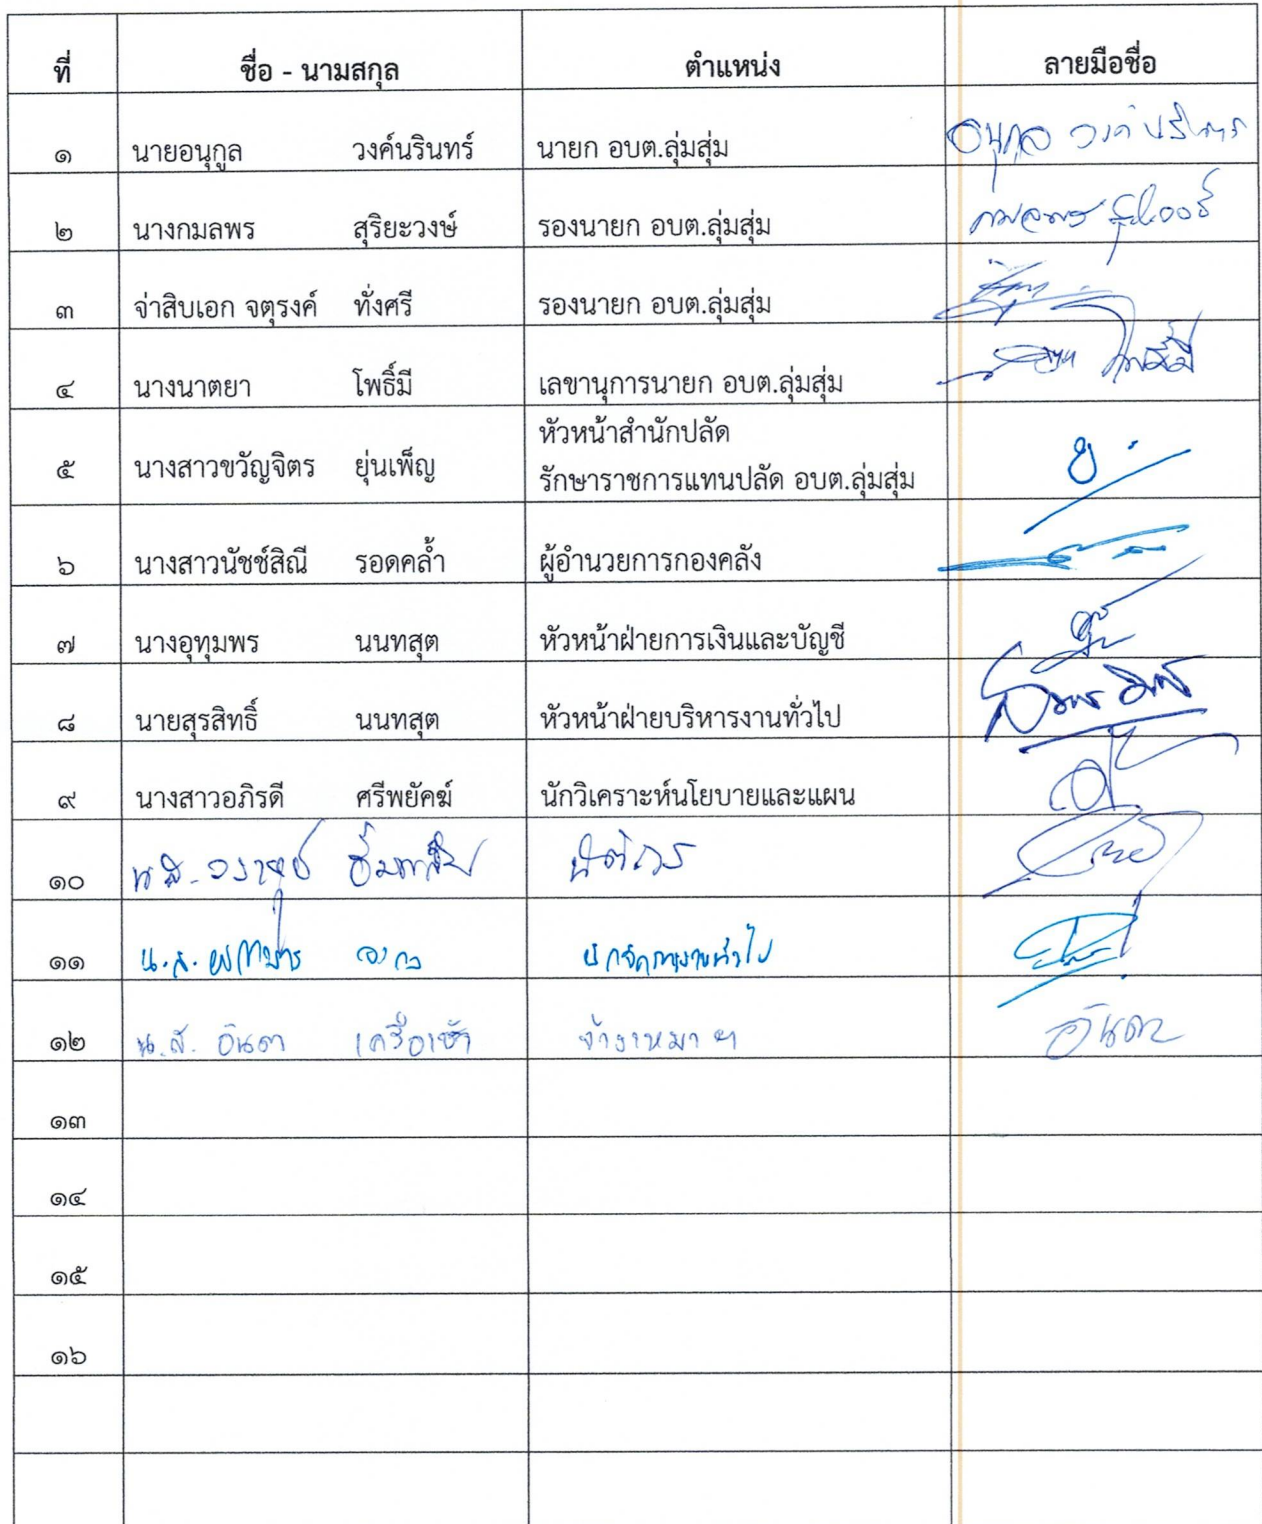 ที่ ชื่อ - นามสกุล ตำแหน่ง ลายมือชื่อ
๑ นายอนุกูล วงค์นรินทร์ นายก อบต.ลุ่มสุ่ม อนุกูล
๒ นางกมลพร สุริยะวงษ์ รองนายก อบต.ลุ่มสุ่ม กมลพร
๓ จ่าสิบเอก จตุรงค์ ทั่งศรี รองนายก อบต.ลุ่มสุ่ม
๔ นางนาตยา โพธิ์มี เลขานุการนายก อบต.ลุ่มสุ่ม
หัวหน้าสำนักปลัด
๕ นางสาวขวัญจิตร ยุ่นเพ็ญ รักษาราชการแทนปลัด อบต.ลุ่มสุ่ม
๖ นางสาวนัชช์สิณี รอดคล้ำ ผู้อำนวยการกองคลัง
๗ นางอุทุมพร นนทสุต หัวหน้าฝ่ายการเงินและบัญชี
๘ นายสุรสิทธิ์ นนทสุต หัวหน้าฝ่ายบริหารงานทั่วไป
๙ นางสาวอภิรดี ศรีพยัคฆ์ นักวิเคราะห์นโยบายและแผน
๑๐ น.ส. นิติกร
๑๑ น.ส. นักจัดการงานทั่วไป
๑๒ น.ส. อันดา จ้างเหมาฯ อันดา
๑๓
๑๔
๑๕
๑๖